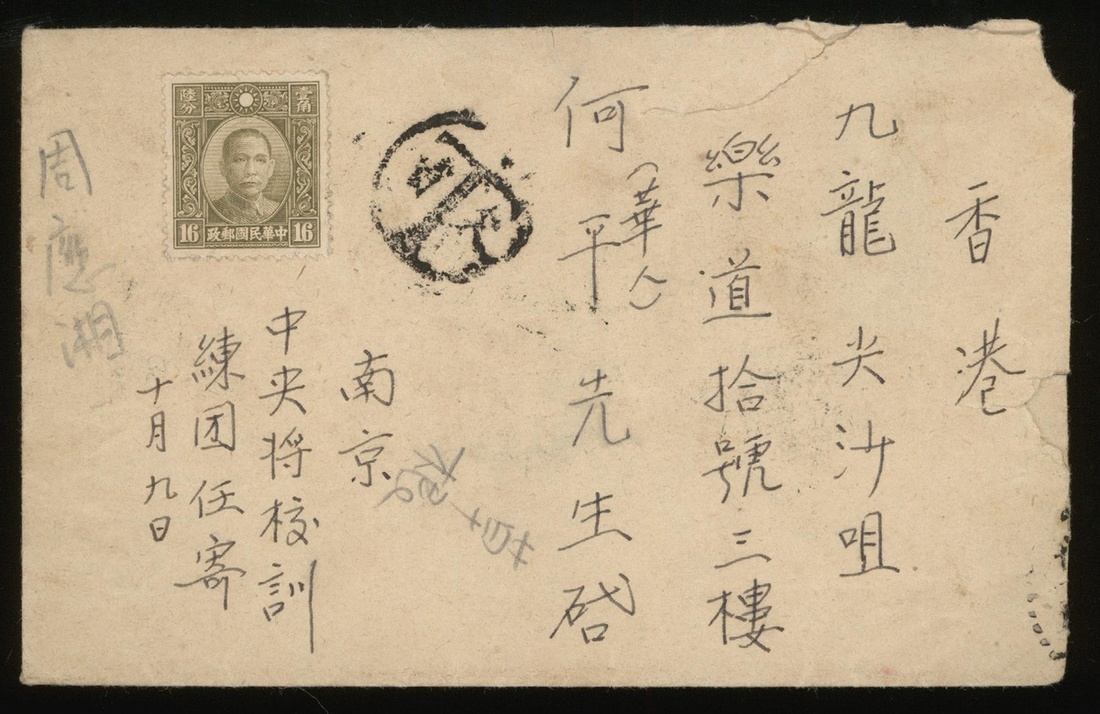 香港
九龍尖沙咀
樂道拾號三樓
何平先生啓
(華人)
南京
中央将校訓
練团任寄
十月九日
周應湘
壹角
陸分
16
中華民國郵政
16